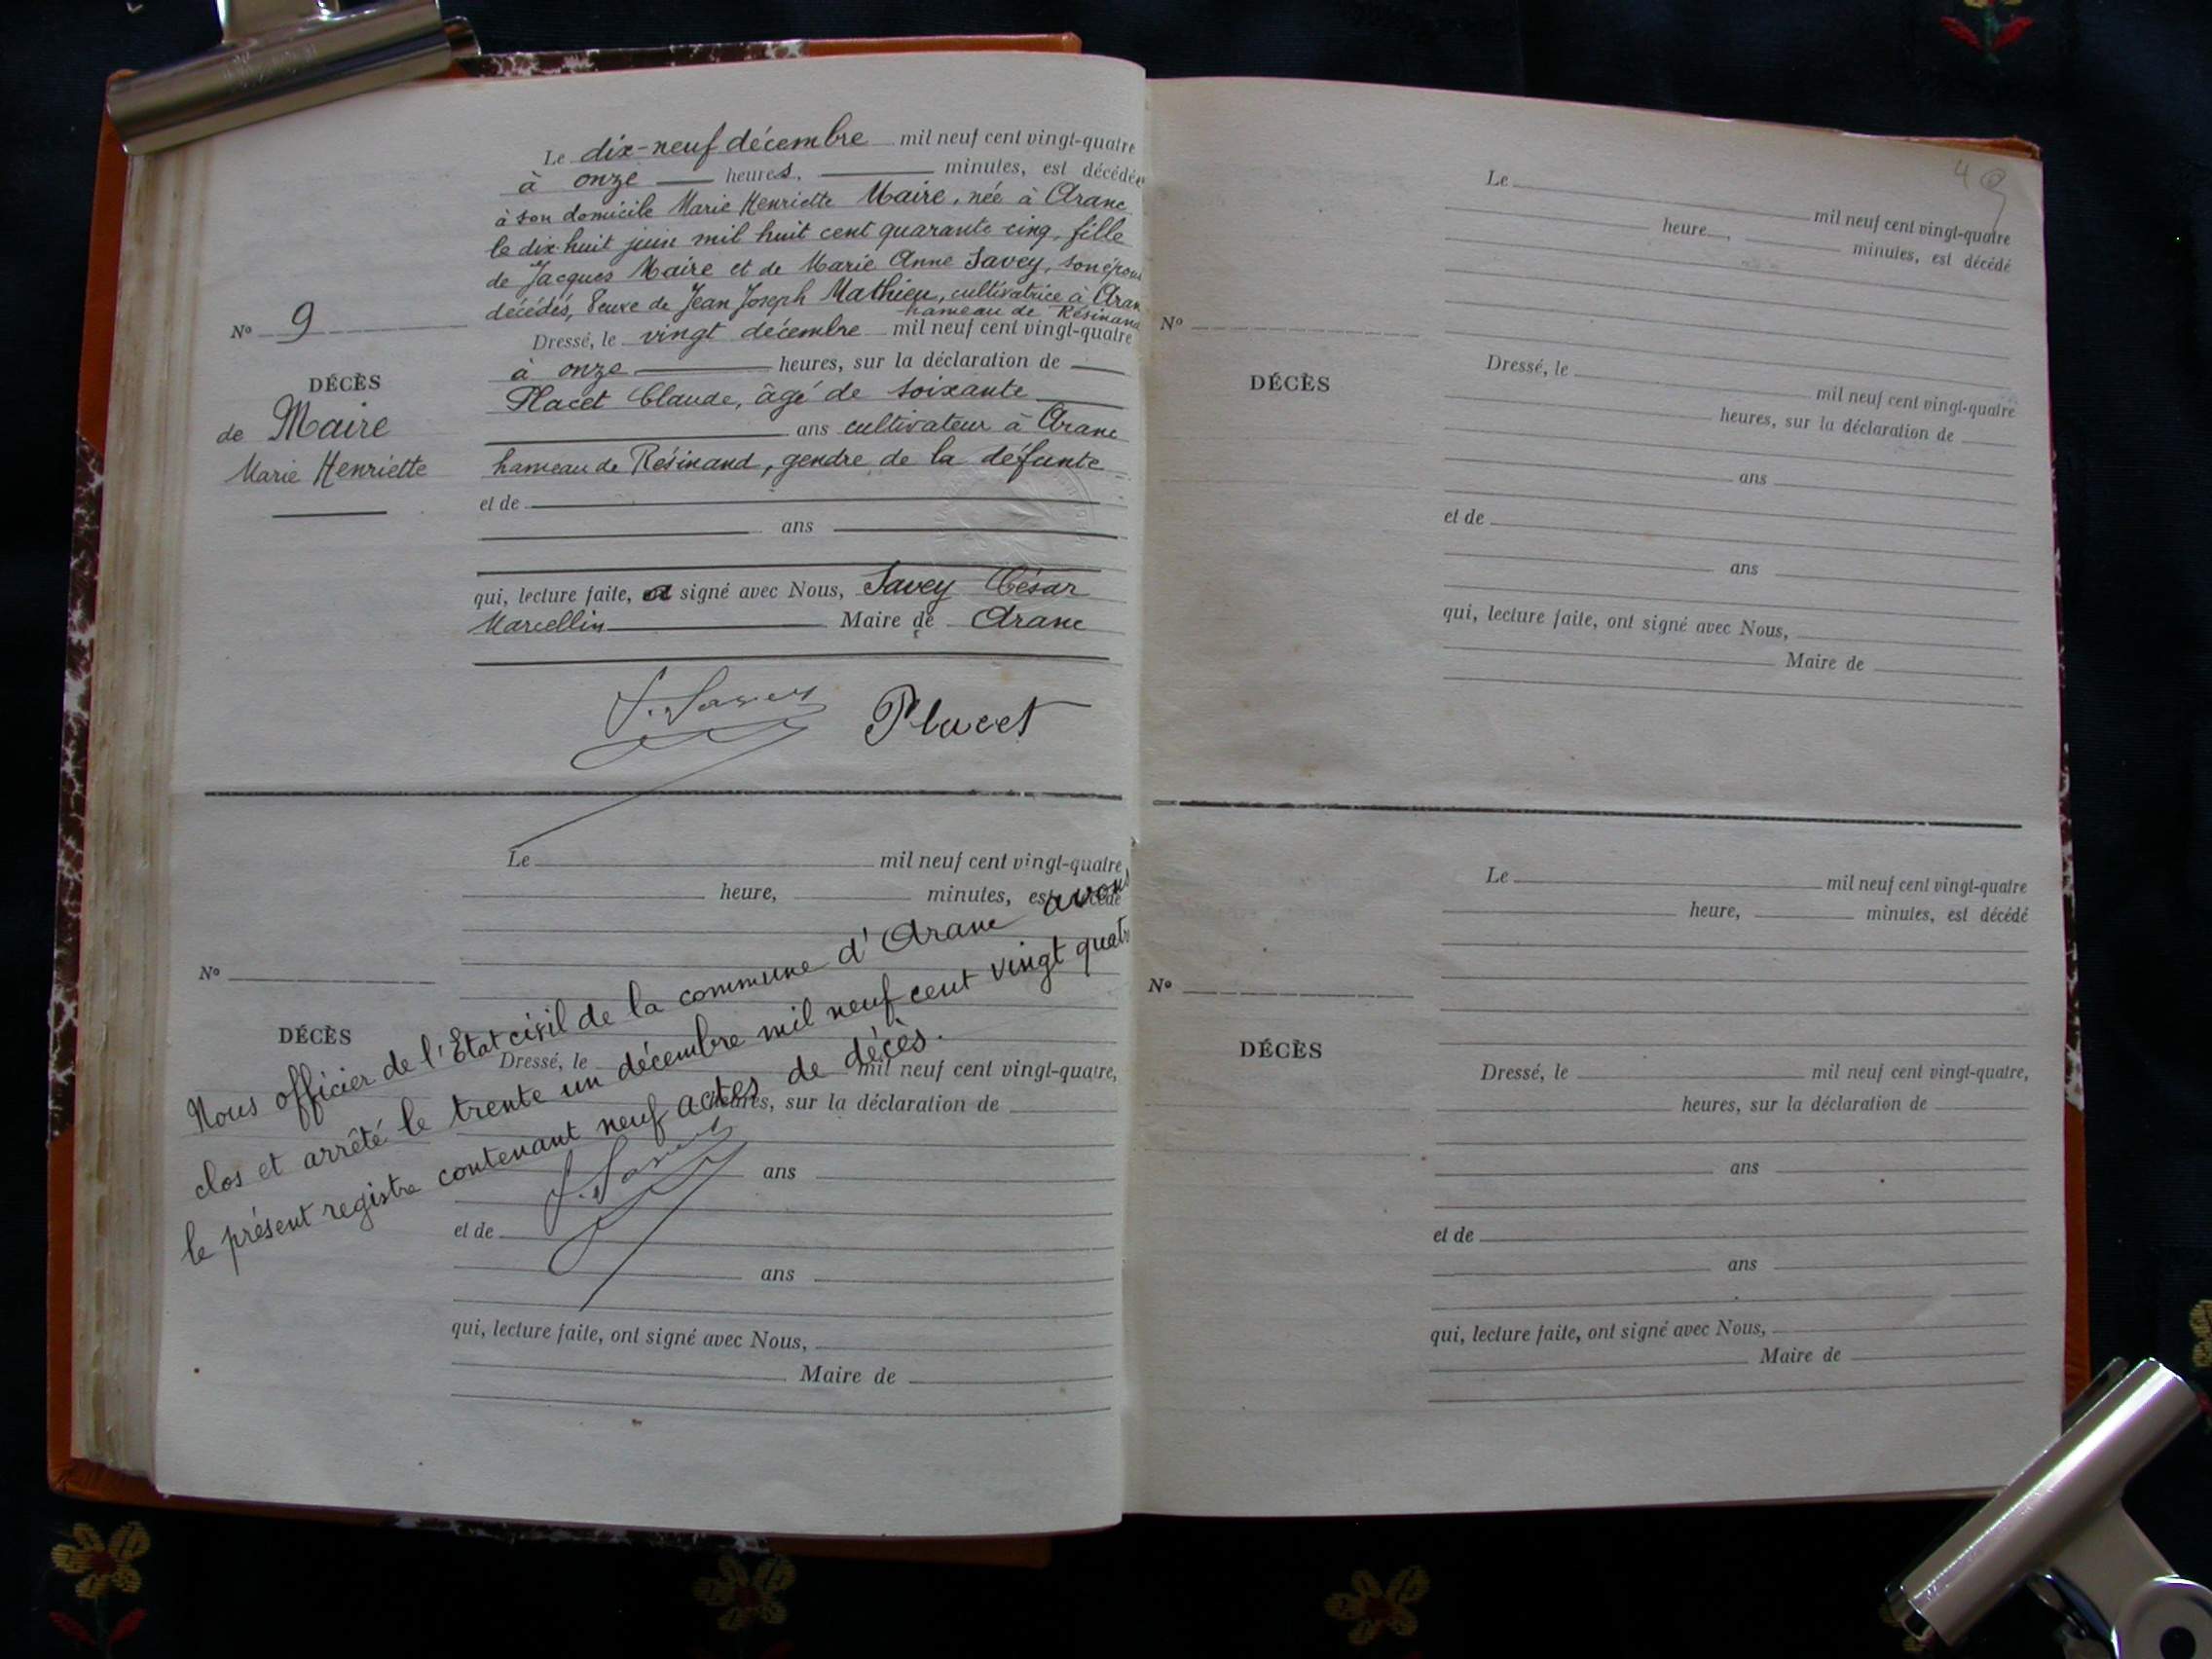 Le dix-neuf décembre mil neuf cent vingt-quatre
à onze heures, minutes, est décédée
à son domicile Marie Henriette Maire, née à Aranc
le dix-huit juin mil huit cent quarante-cinq, fille
de Jacques Maire et de Marie Anne Savey, son épou
décédés, Veuve de Jean Joseph Mathieu, cultivatrice à Aran
hameau de Résinand
Nº 9
Dressé, le vingt décembre mil neuf cent vingt-quatre
à onze heures, sur la déclaration de
DÉCÈS
Placet Claude, âgé de soixante
de Maire
ans cultivateur à Aranc
Marie Henriette
hameau de Résinand, gendre de la défunte
et de
ans
qui, lecture faite, a signé avec Nous, Savey César
Marcellin Maire de Aranc
Placet
Le mil neuf cent vingt-quatre
heure, minutes, est décédé
Nº
DÉCÈS
Dressé, le mil neuf cent vingt-quatre,
heures, sur la déclaration de
ans
et de
ans
qui, lecture faite, ont signé avec Nous,
Maire de
Nous officier de l'Etat civil de la commune d'Aranc avons
clos et arrêté le trente un décembre mil neuf cent vingt quatr
le présent registre contenant neuf actes de décès.
Le mil neuf cent vingt-quatre
heure, minutes, est décédé
Nº
Dressé, le mil neuf cent vingt-quatre
DÉCÈS
heures, sur la déclaration de
ans
et de
ans
qui, lecture faite, ont signé avec Nous,
Maire de
Le mil neuf cent vingt-quatre
heure, minutes, est décédé
Nº
DÉCÈS
Dressé, le mil neuf cent vingt-quatre,
heures, sur la déclaration de
ans
et de
ans
qui, lecture faite, ont signé avec Nous,
Maire de